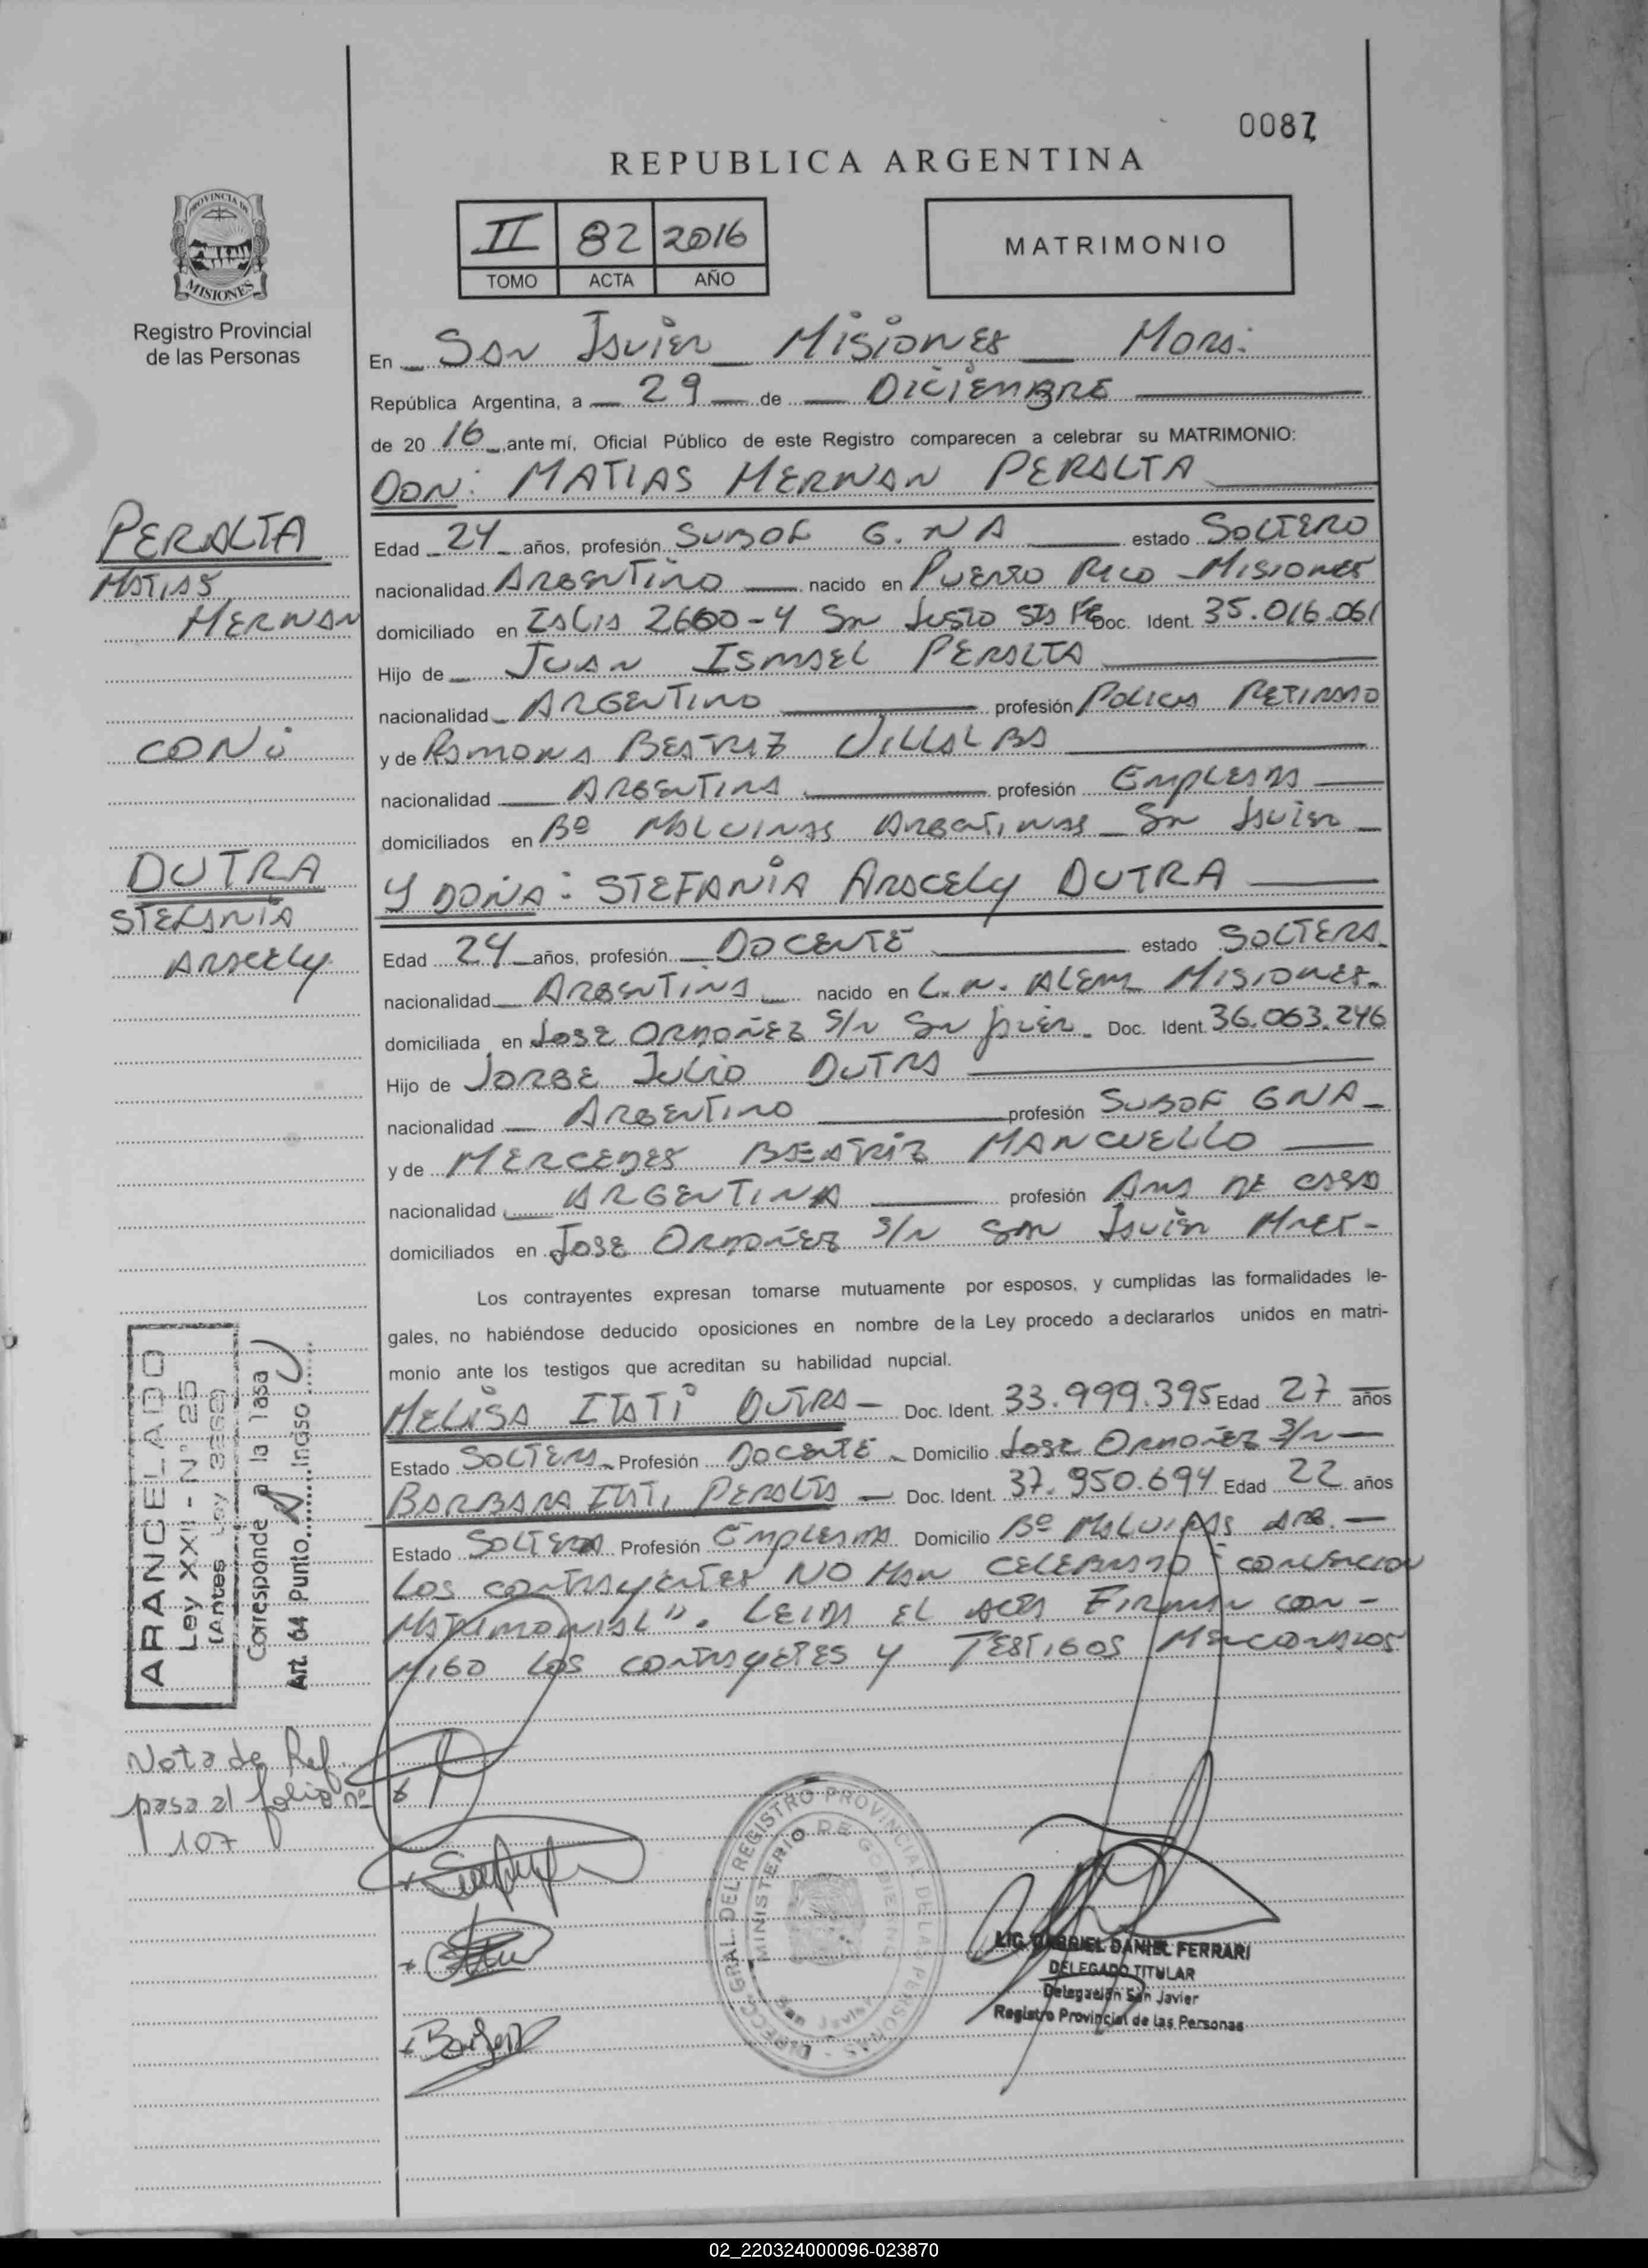 0087
REPUBLICA ARGENTINA
II 82 2016
TOMO ACTA AÑO
MATRIMONIO
PROVINCIA DE
MISIONES
Registro Provincial
de las Personas
En San Javier Misiones
República Argentina, a 29 de DICIEMBRE
de 2016, ante mí, Oficial Público de este Registro comparecen a celebrar su MATRIMONIO:
DON: MATIAS HERNAN PERALTA
PERALTA
MATIAS
HERNAN
CON:
DUTRA
STEFANIA
ARACELY
Edad 24 años, profesión SUBOF G. NA estado SOLTERO
nacionalidad ARGENTINO nacido en PUERTO RICO - MISIONES
domiciliado en 2660-4 San Justo Sta Fe Doc. Ident. 35.016.061
Hijo de JUAN ISMAEL PERALTA
nacionalidad ARGENTINO profesión POLICIA RETIRADO
y de RAMONA BEATRIZ VILLALBA
nacionalidad ARGENTINA profesión EMPLEADA
domiciliados en Bº MALVINAS ARGENTINAS San Javier
Y DOÑA: STEFANIA ARACELY DUTRA
Edad 24 años, profesión DOCENTE estado SOLTERA
nacionalidad ARGENTINA nacido en L.N. ALEM MISIONES
domiciliada en JOSE ORDOÑEZ S/N San Javier Doc. Ident. 36.063.246
Hijo de JORGE JULIO DUTRA
nacionalidad ARGENTINO profesión SUBOF GNA
y de MERCEDES BEATRIZ MANCUELLO
nacionalidad ARGENTINA profesión AMA DE CASA
domiciliados en JOSE ORDOÑEZ S/N SAN Javier
Los contrayentes expresan tomarse mutuamente por esposos, y cumplidas las formalidades le-
gales, no habiéndose deducido oposiciones en nombre de la Ley procedo a declararlos unidos en matri-
monio ante los testigos que acreditan su habilidad nupcial.
MELISA ITATI DUTRA - Doc. Ident. 33.999.395 Edad 27 años
Estado SOLTERA Profesión DOCENTE Domicilio JOSE ORDOÑEZ S/N
BARBARA ITATI PERALTA - Doc. Ident. 37.950.694 Edad 22 años
Estado SOLTERA Profesión EMPLEADA Domicilio Bº MALVINAS ARG.
LOS CONTRAYENTES NO HAN CELEBRADO "CONVENCION
MATRIMONIAL". LEIDA EL ACTA FIRMAN CON-
MIGO LOS CONTRAYETES Y TESTIGOS MENCIONADOS
ARANCELADO
Ley XXII - Nº 25
(Antes Ley
Corresponde a la Tasa
Art. 64 Punto Inciso
Nota de Ref.
pasa al folio nº
107
DIRECC. GRAL. DEL REGISTRO PROVINCIAL DE LAS PERSONAS
MINISTERIO DE GOBIERNO
San Javier
LIC. GABRIEL DANIEL FERRARI
DELEGADO TITULAR
Delegación San Javier
Registro Provincial de las Personas
02_220324000096-023870